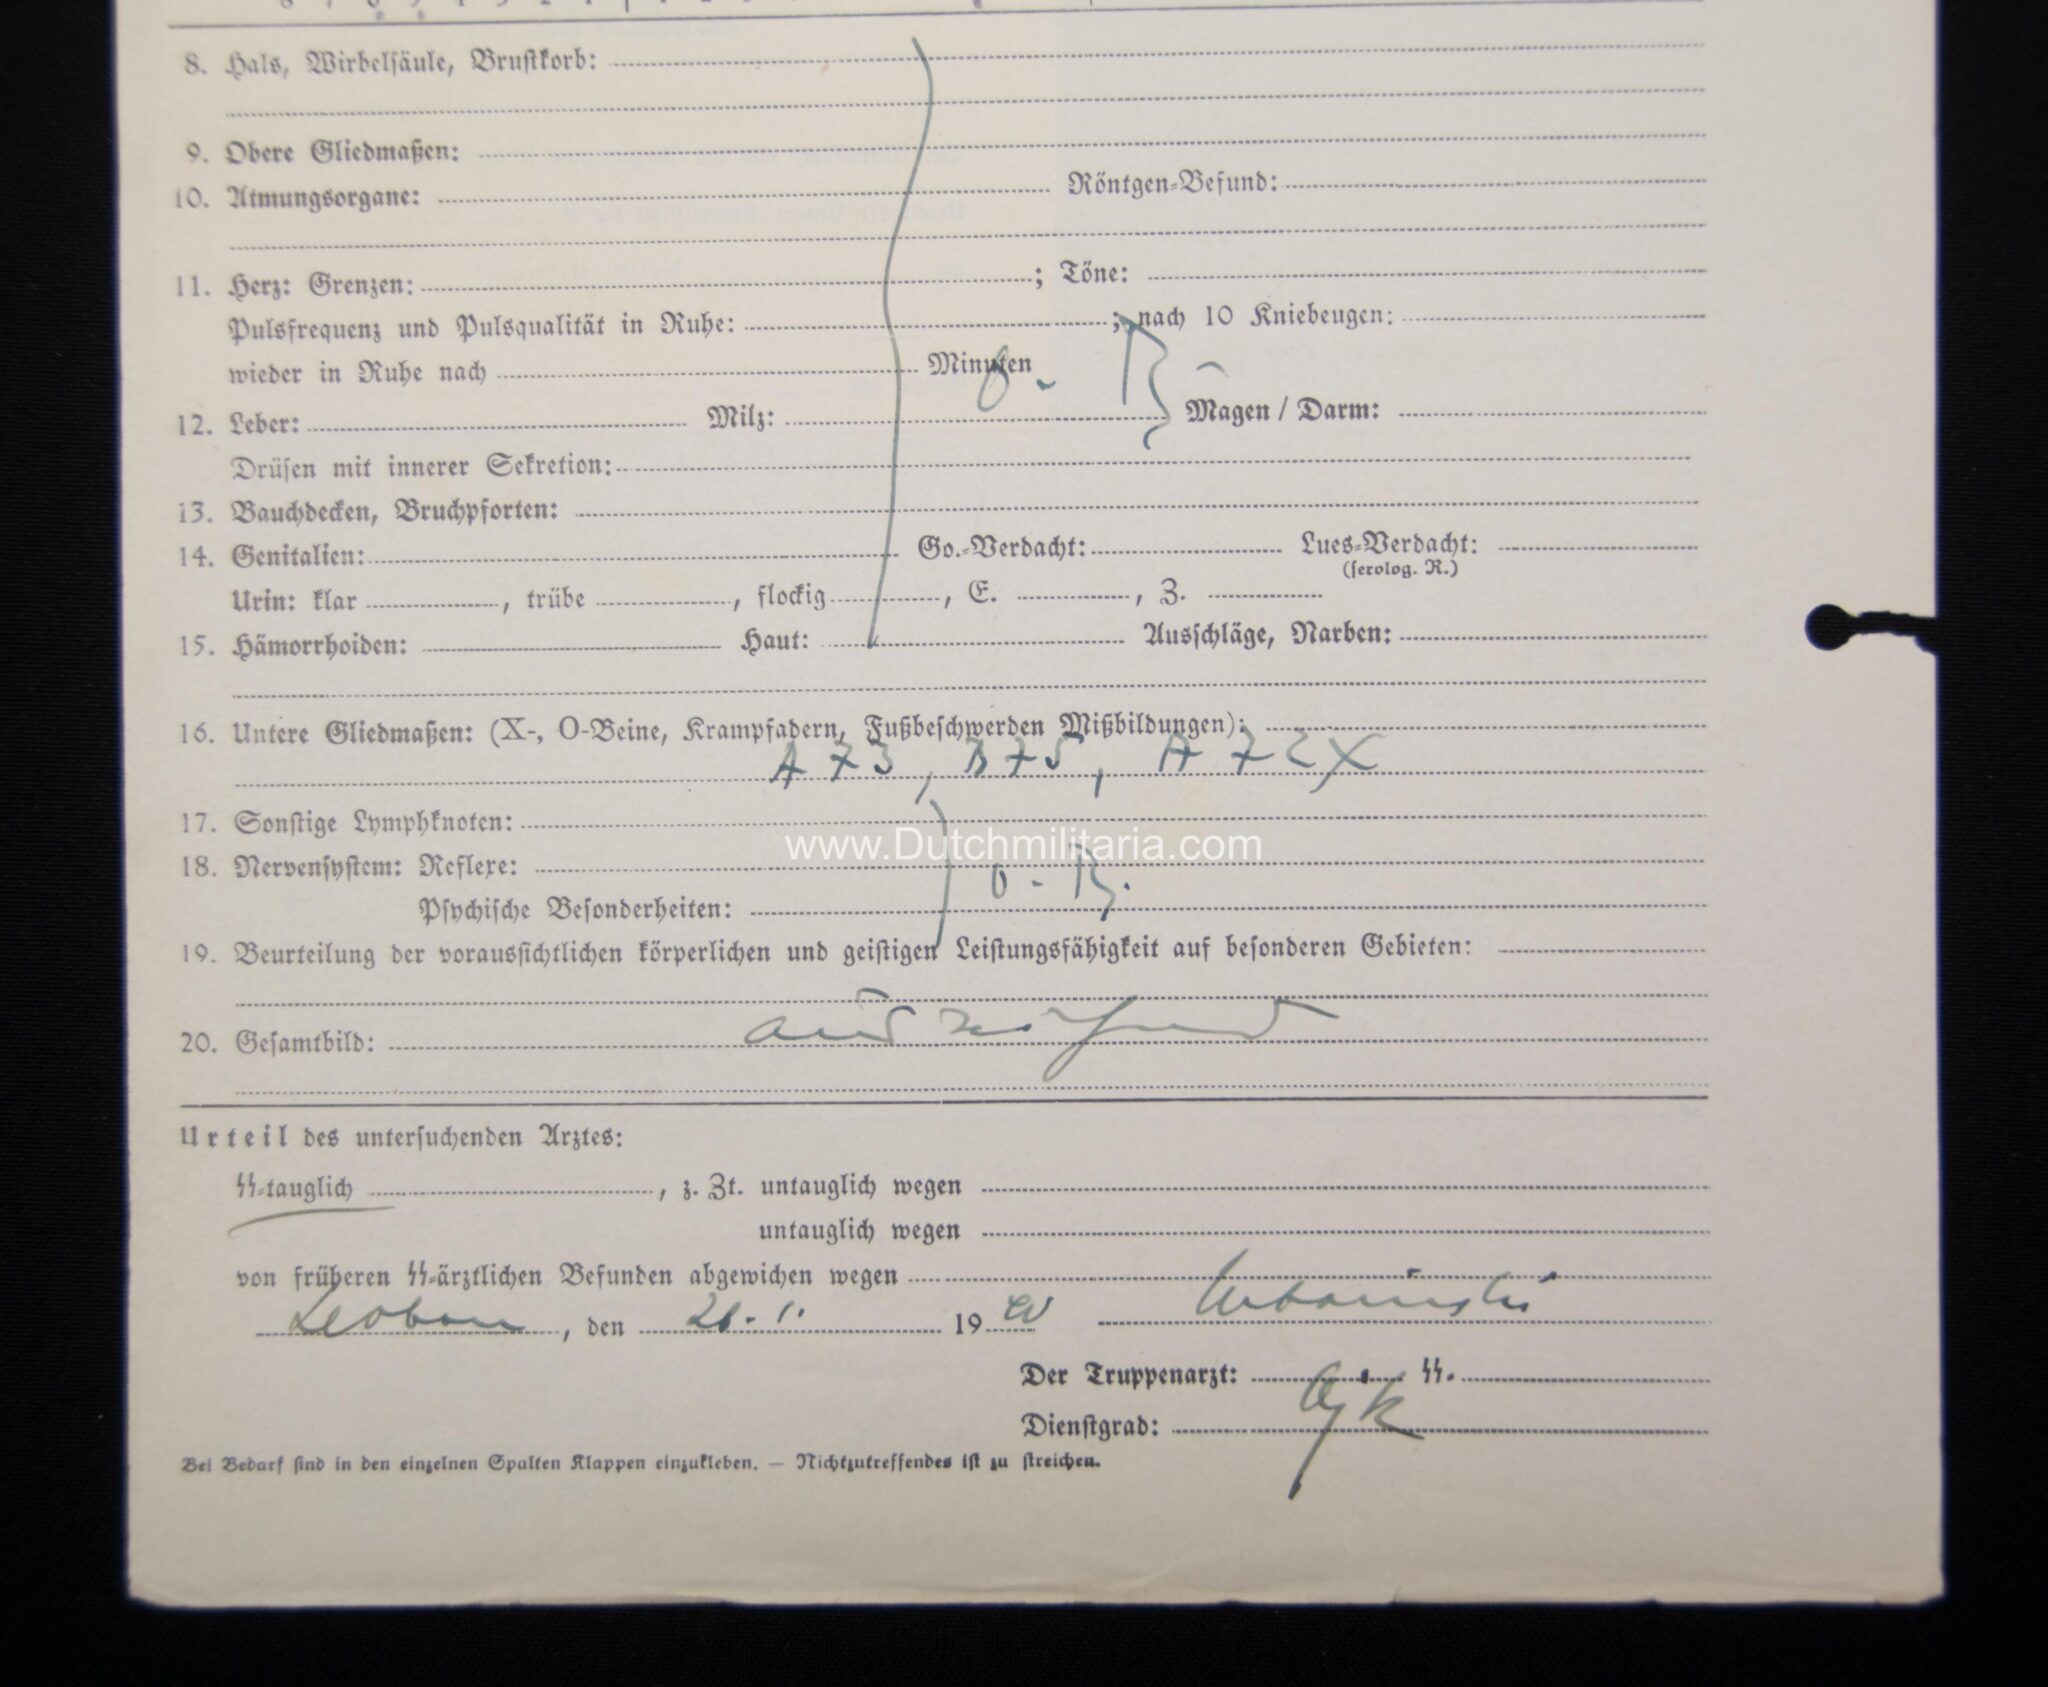 8. Hals, Wirbelsäule, Brustkorb:
9. Obere Gliedmaßen:
10. Atmungsorgane: Röntgen-Befund:
11. Herz: Grenzen: ; Töne:
Pulsfrequenz und Pulsqualität in Ruhe: ; nach 10 Kniebeugen:
wieder in Ruhe nach Minuten
12. Leber: Milz: Magen / Darm:
Drüsen mit innerer Sekretion:
13. Bauchdecken, Bruchpforten:
14. Genitalien: Go.-Verdacht: Lues-Verdacht:
(serolog. R.)
Urin: klar , trübe , flockig , E. , Z.
15. Hämorrhoiden: Haut: Ausschläge, Narben:
16. Untere Gliedmaßen: (X-, O-Beine, Krampfadern, Fußbeschwerden Mißbildungen):
A 73, B 75, A 72
17. Sonstige Lymphknoten:
www.Dutchmilitaria.com
18. Nervensystem: Reflexe:
o. B.
Psychische Besonderheiten:
19. Beurteilung der voraussichtlichen körperlichen und geistigen Leistungsfähigkeit auf besonderen Gebieten:
20. Gesamtbild:
Urteil des untersuchenden Arztes:
SS-tauglich , z. Zt. untauglich wegen
untauglich wegen
von früheren SS-ärztlichen Befunden abgewichen wegen
Leoben, den 19 40
Der Truppenarzt: SS.
Dienstgrad:
Bei Bedarf sind in den einzelnen Spalten Klappen einzukleben. — Nichtzutreffendes ist zu streichen.